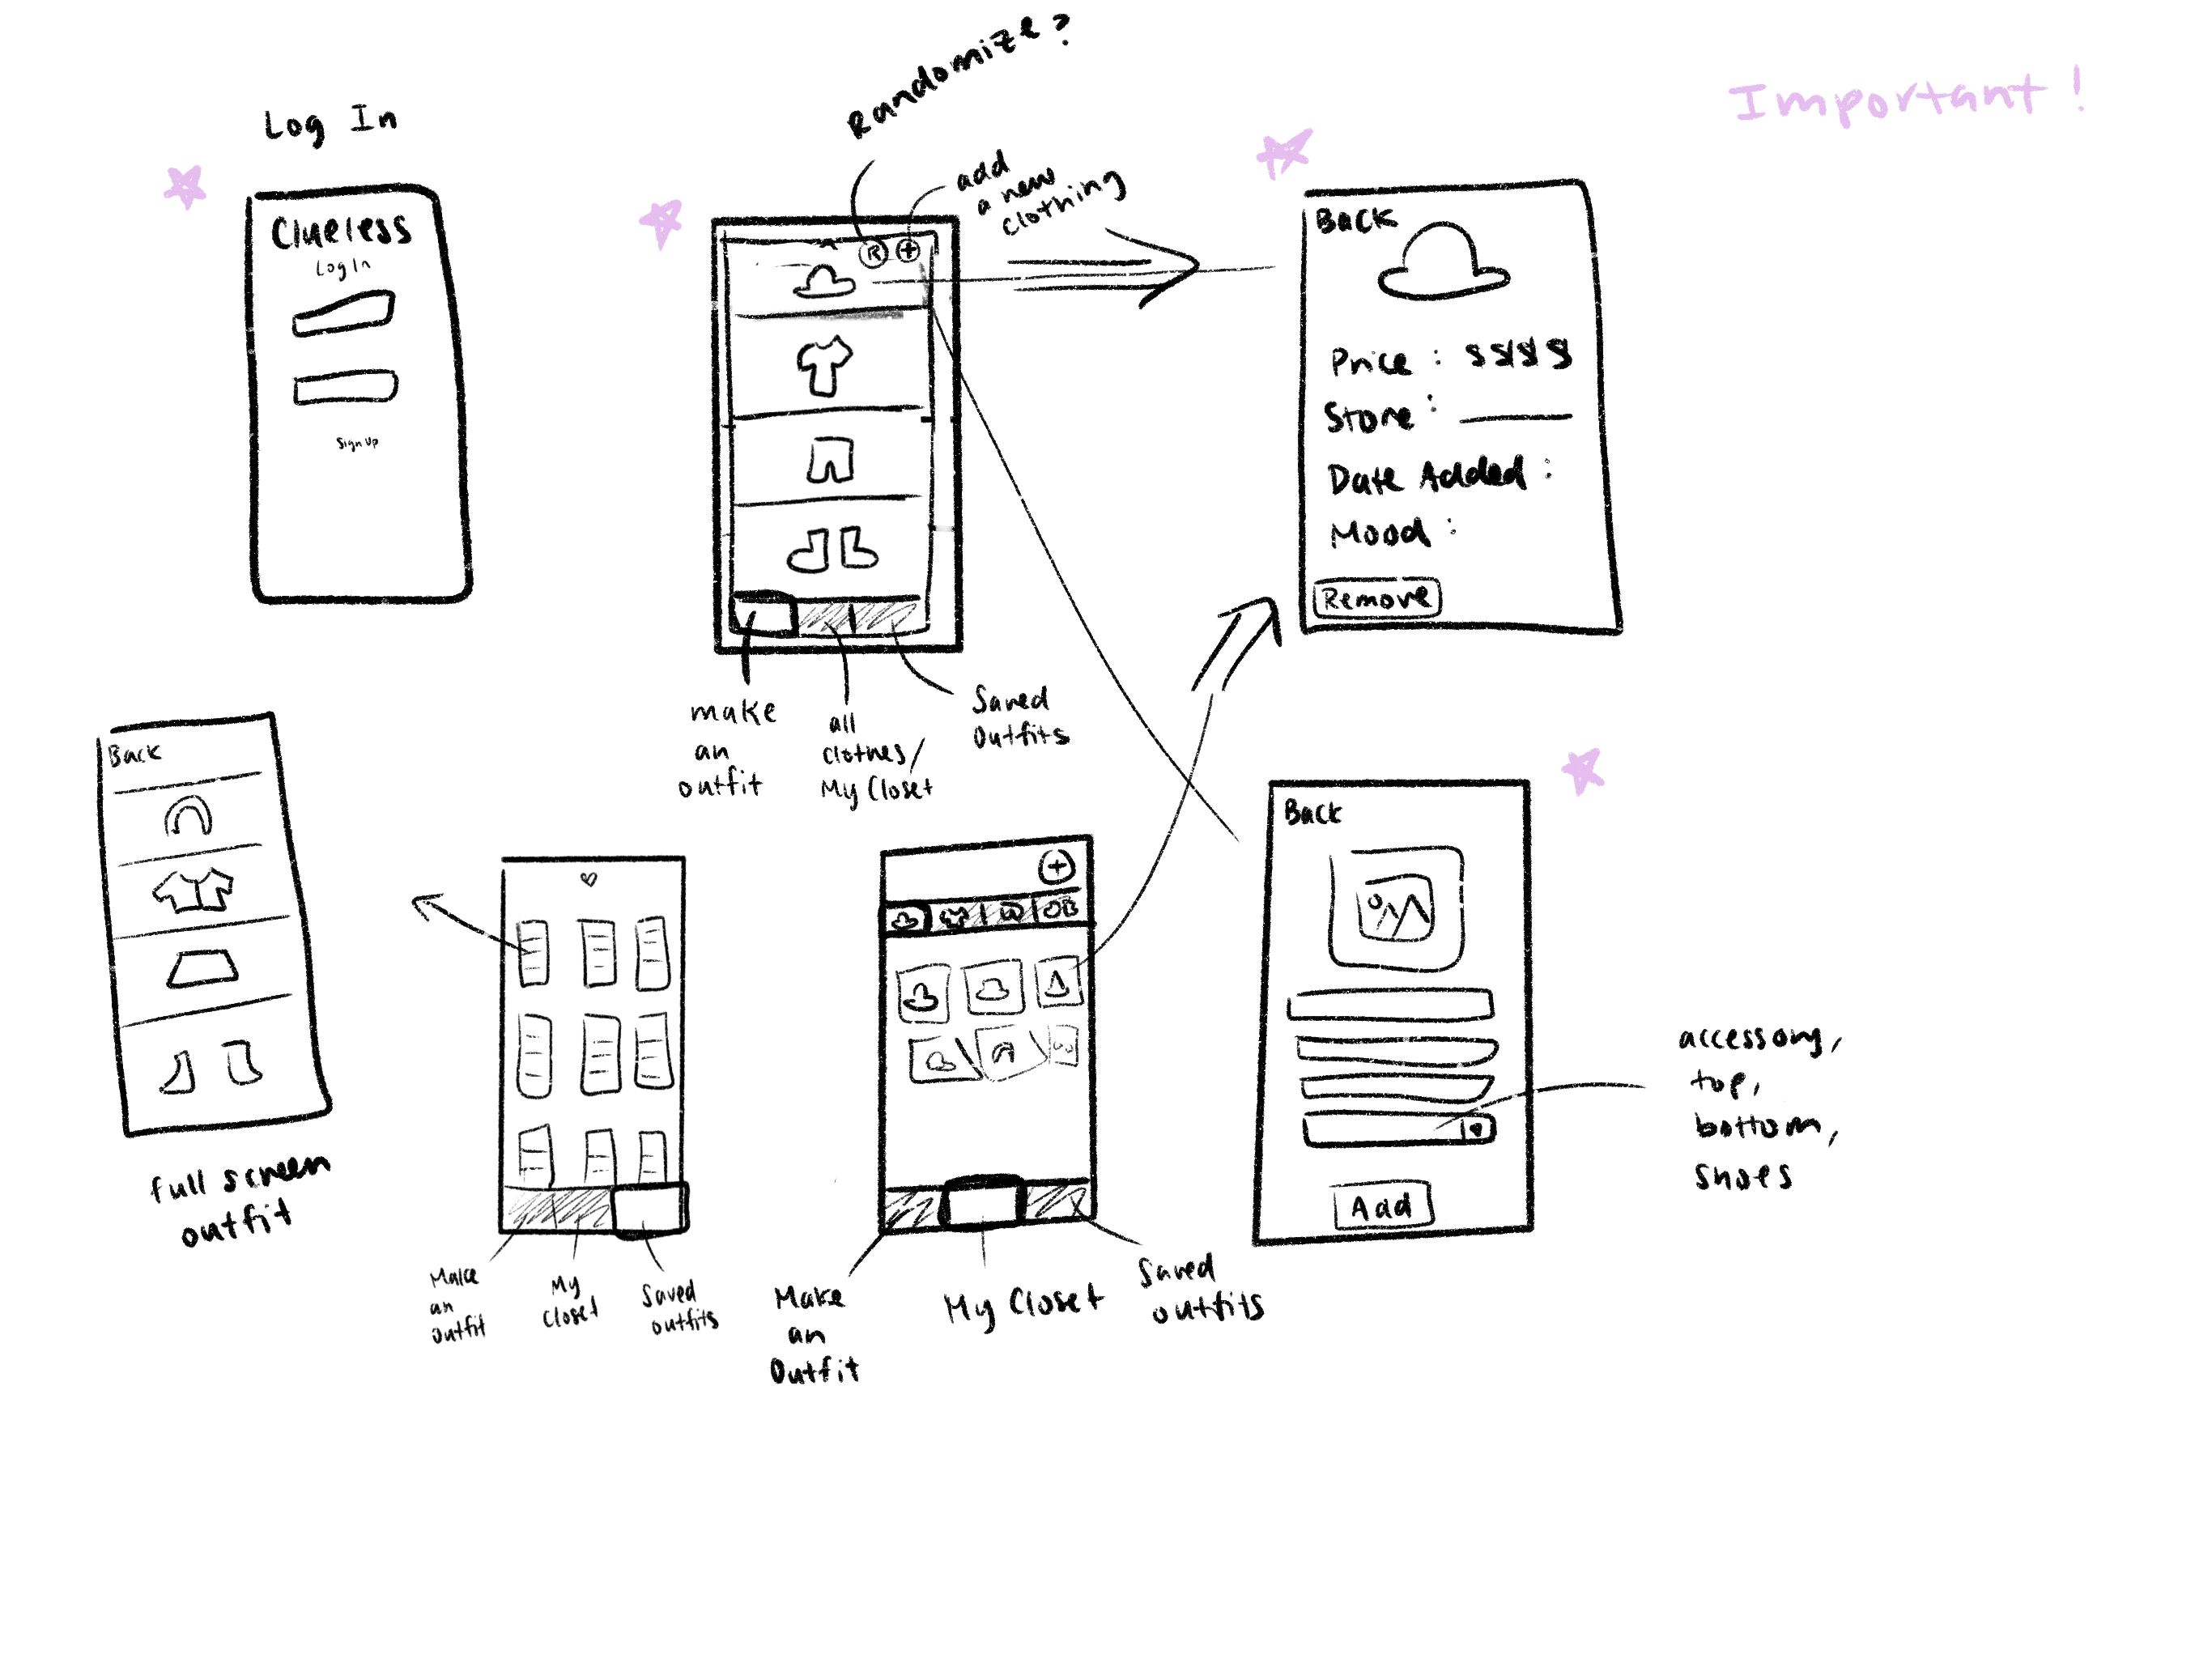 Important!
Log In
Clueless
Log In
Sign Up
Randomize?
add
a new
clothing
R +
make
an
outfit
all
clothes/
My Closet
Saved
Outfits
Back
Price : $$$$
Store :
Date Added :
Mood :
Remove
Back
full screen
outfit
Make
an
outfit
My
Closet
Saved
outfits
+
Make
an
Outfit
My Closet
Saved
outfits
Back
Add
accessory,
top,
bottom,
shoes